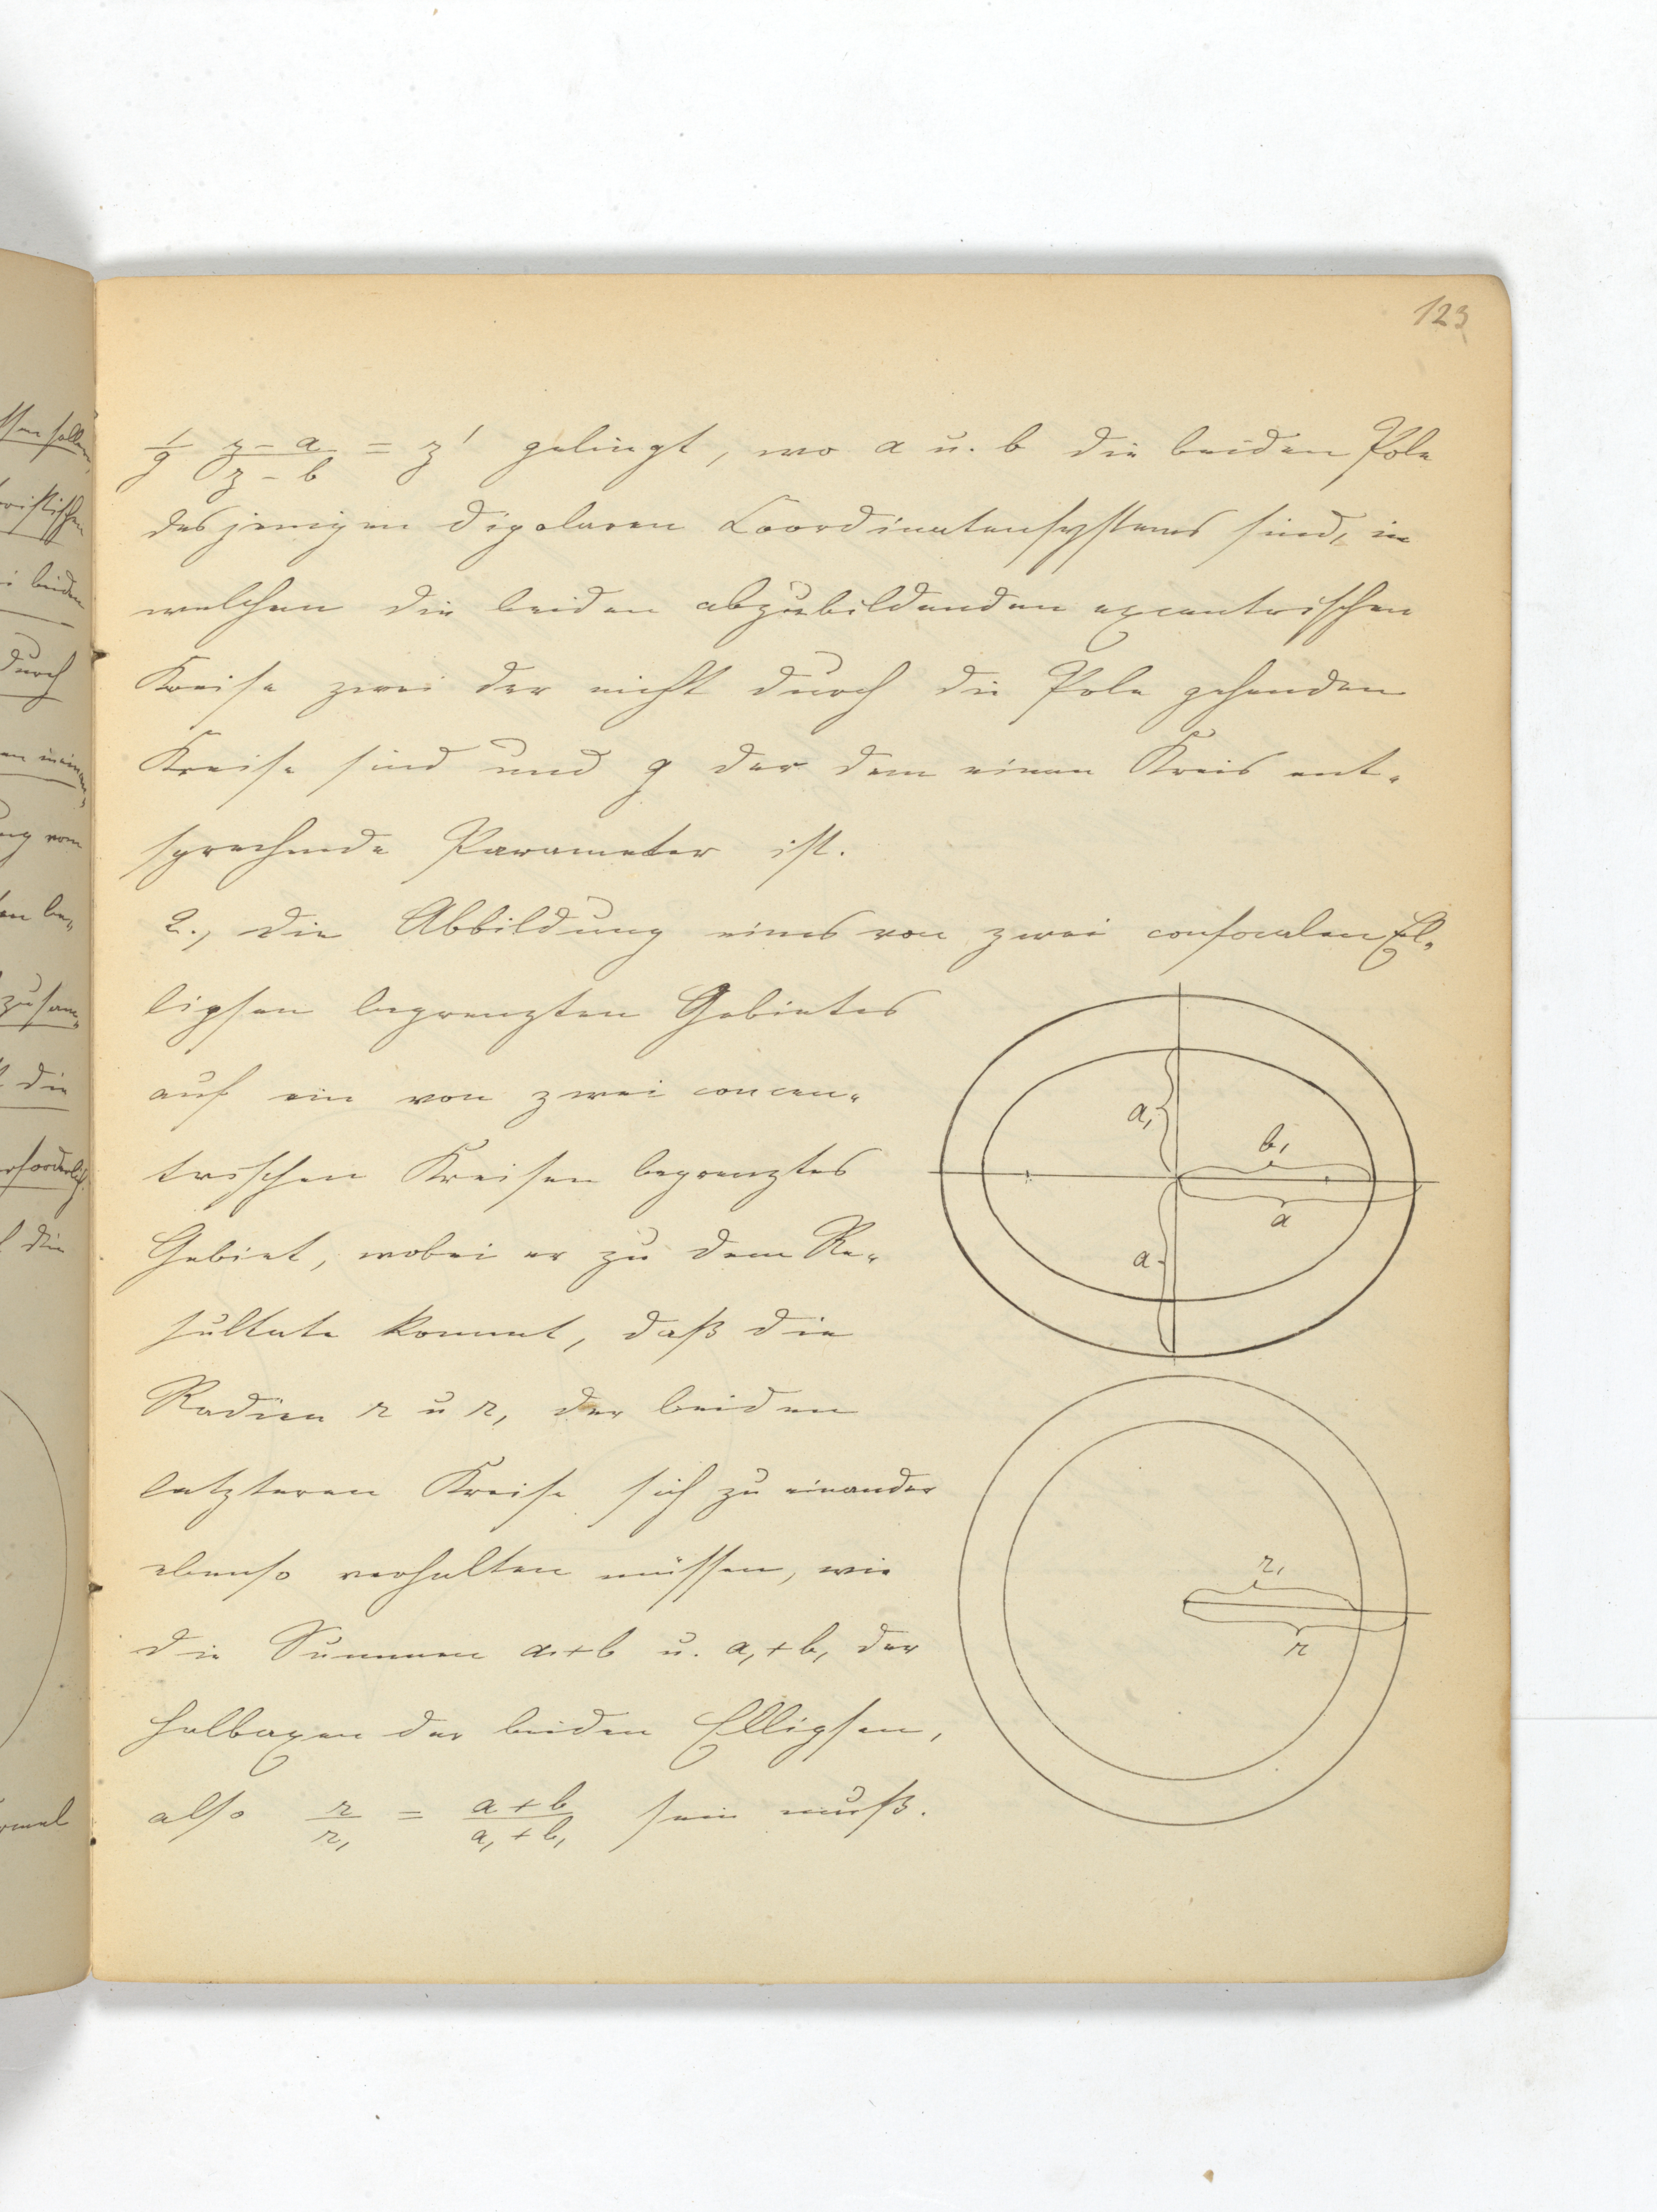 123
1/g (z-a)/(z-b) = z' gelingt, wo a u. b die beiden Pole
desjenigen dipolaren Coordinatensystems sind, in
welchem die beiden abzubildenden excentrischen
Kreise zwei der nicht durch die Pole gehenden
Kreise sind und g der dem einen Kreis ent-
sprechende Parameter ist.
2., die Abbildung eines von zwei confocalen El-
lipsen begrenzten Gebietes
auf ein von zwei concen-
trischen Kreisen begrenztes
Gebiet, wobei er zu dem Re-
sultate kommt, daß die
Radien r u r, der beiden
letzteren Kreise sich zu einander
ebenso verhalten müssen, wie
die Summen a+b u. a,+b, der
Halbaxen der beiden Ellipsen,
also r/r, = (a+b)/(a,+b,) sein muß.
a,
b,
a
a
r,
r
durch
zusam-
die
die